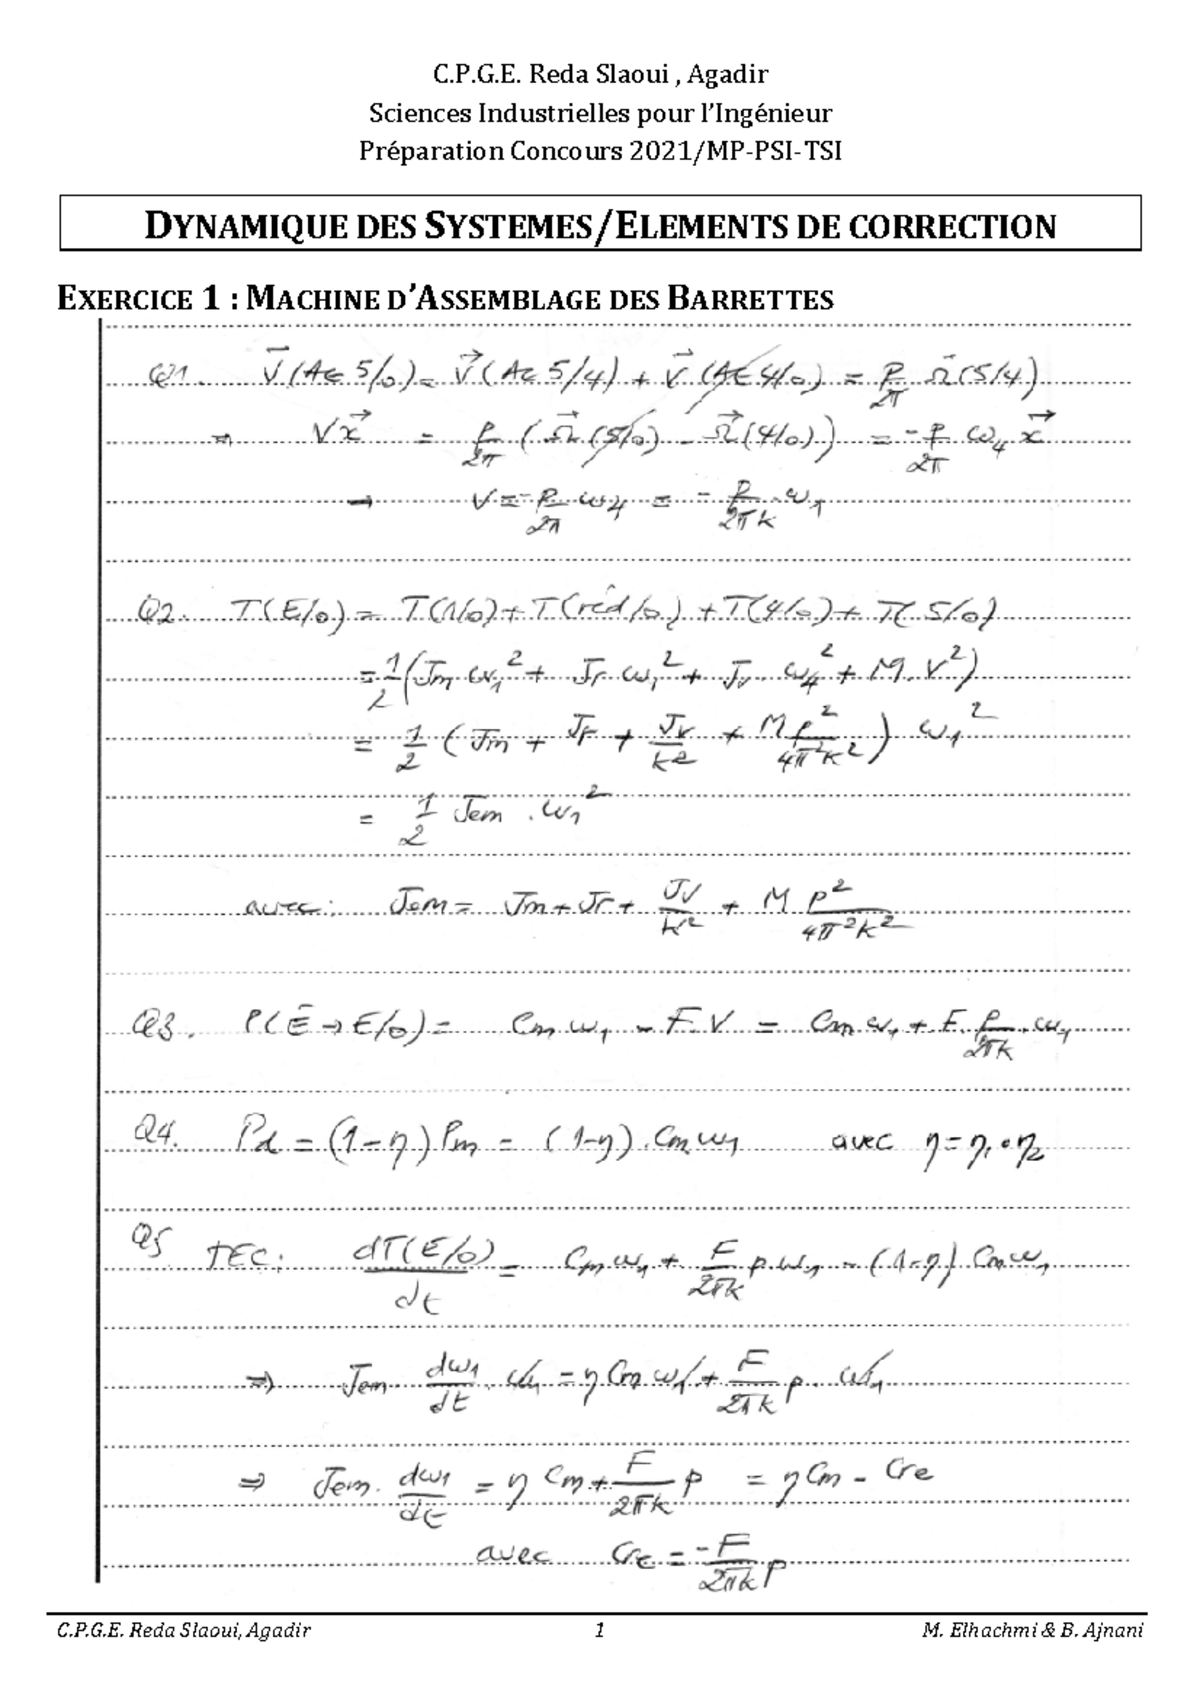 C.P.G.E. Reda Slaoui , Agadir
Sciences Industrielles pour l'Ingénieur
Préparation Concours 2021/MP-PSI-TSI
DYNAMIQUE DES SYSTEMES/ELEMENTS DE CORRECTION
EXERCICE 1 : MACHINE D'ASSEMBLAGE DES BARRETTES
Q1. V⃗(A∈5/0) = V⃗(A∈5/4) + V⃗(A∈4/0) = p/2π Ω⃗(5/4)
⇒ V x⃗ = p/2π (Ω⃗(5/0) - Ω⃗(4/0)) = -p/2π ω₄ x⃗
→ V = -p/2π ω₄ = -p/2πk . ω₁
Q2. T(E/0) = T(1/0) + T(réd/0) + T(4/0) + T(5/0)
= 1/2 (Jm ω₁² + Jr ω₁² + Jv . ω₄² + M . V²)
= 1/2 (Jm + Jr + Jv/k² + M p²/4π²k²) ω₁²
= 1/2 Jem . ω₁²
avec : Jem = Jm + Jr + Jv/k² + M p²/4π²k²
Q3. P(Ē → E/0) = Cm ω₁ - F.V = Cm ω₁ + F . p/2πk . ω₁
Q4. Pd = (1-η) Pm = (1-η) . Cm ω₁ avec η = η₁ . η₂
Q5 TEC : dT(E/0)/dt = Cm ω₁ + F/2πk p . ω₁ - (1-η) Cm ω₁
⇒ Jem dω₁/dt . ω₁ = η Cm ω₁ + F/2πk p . ω₁
⇒ Jem . dω₁/dt = η Cm + F/2πk p = η Cm - Cre
avec Cre = -F/2πk p
C.P.G.E. Reda Slaoui, Agadir 1 M. Elhachmi & B. Ajnani